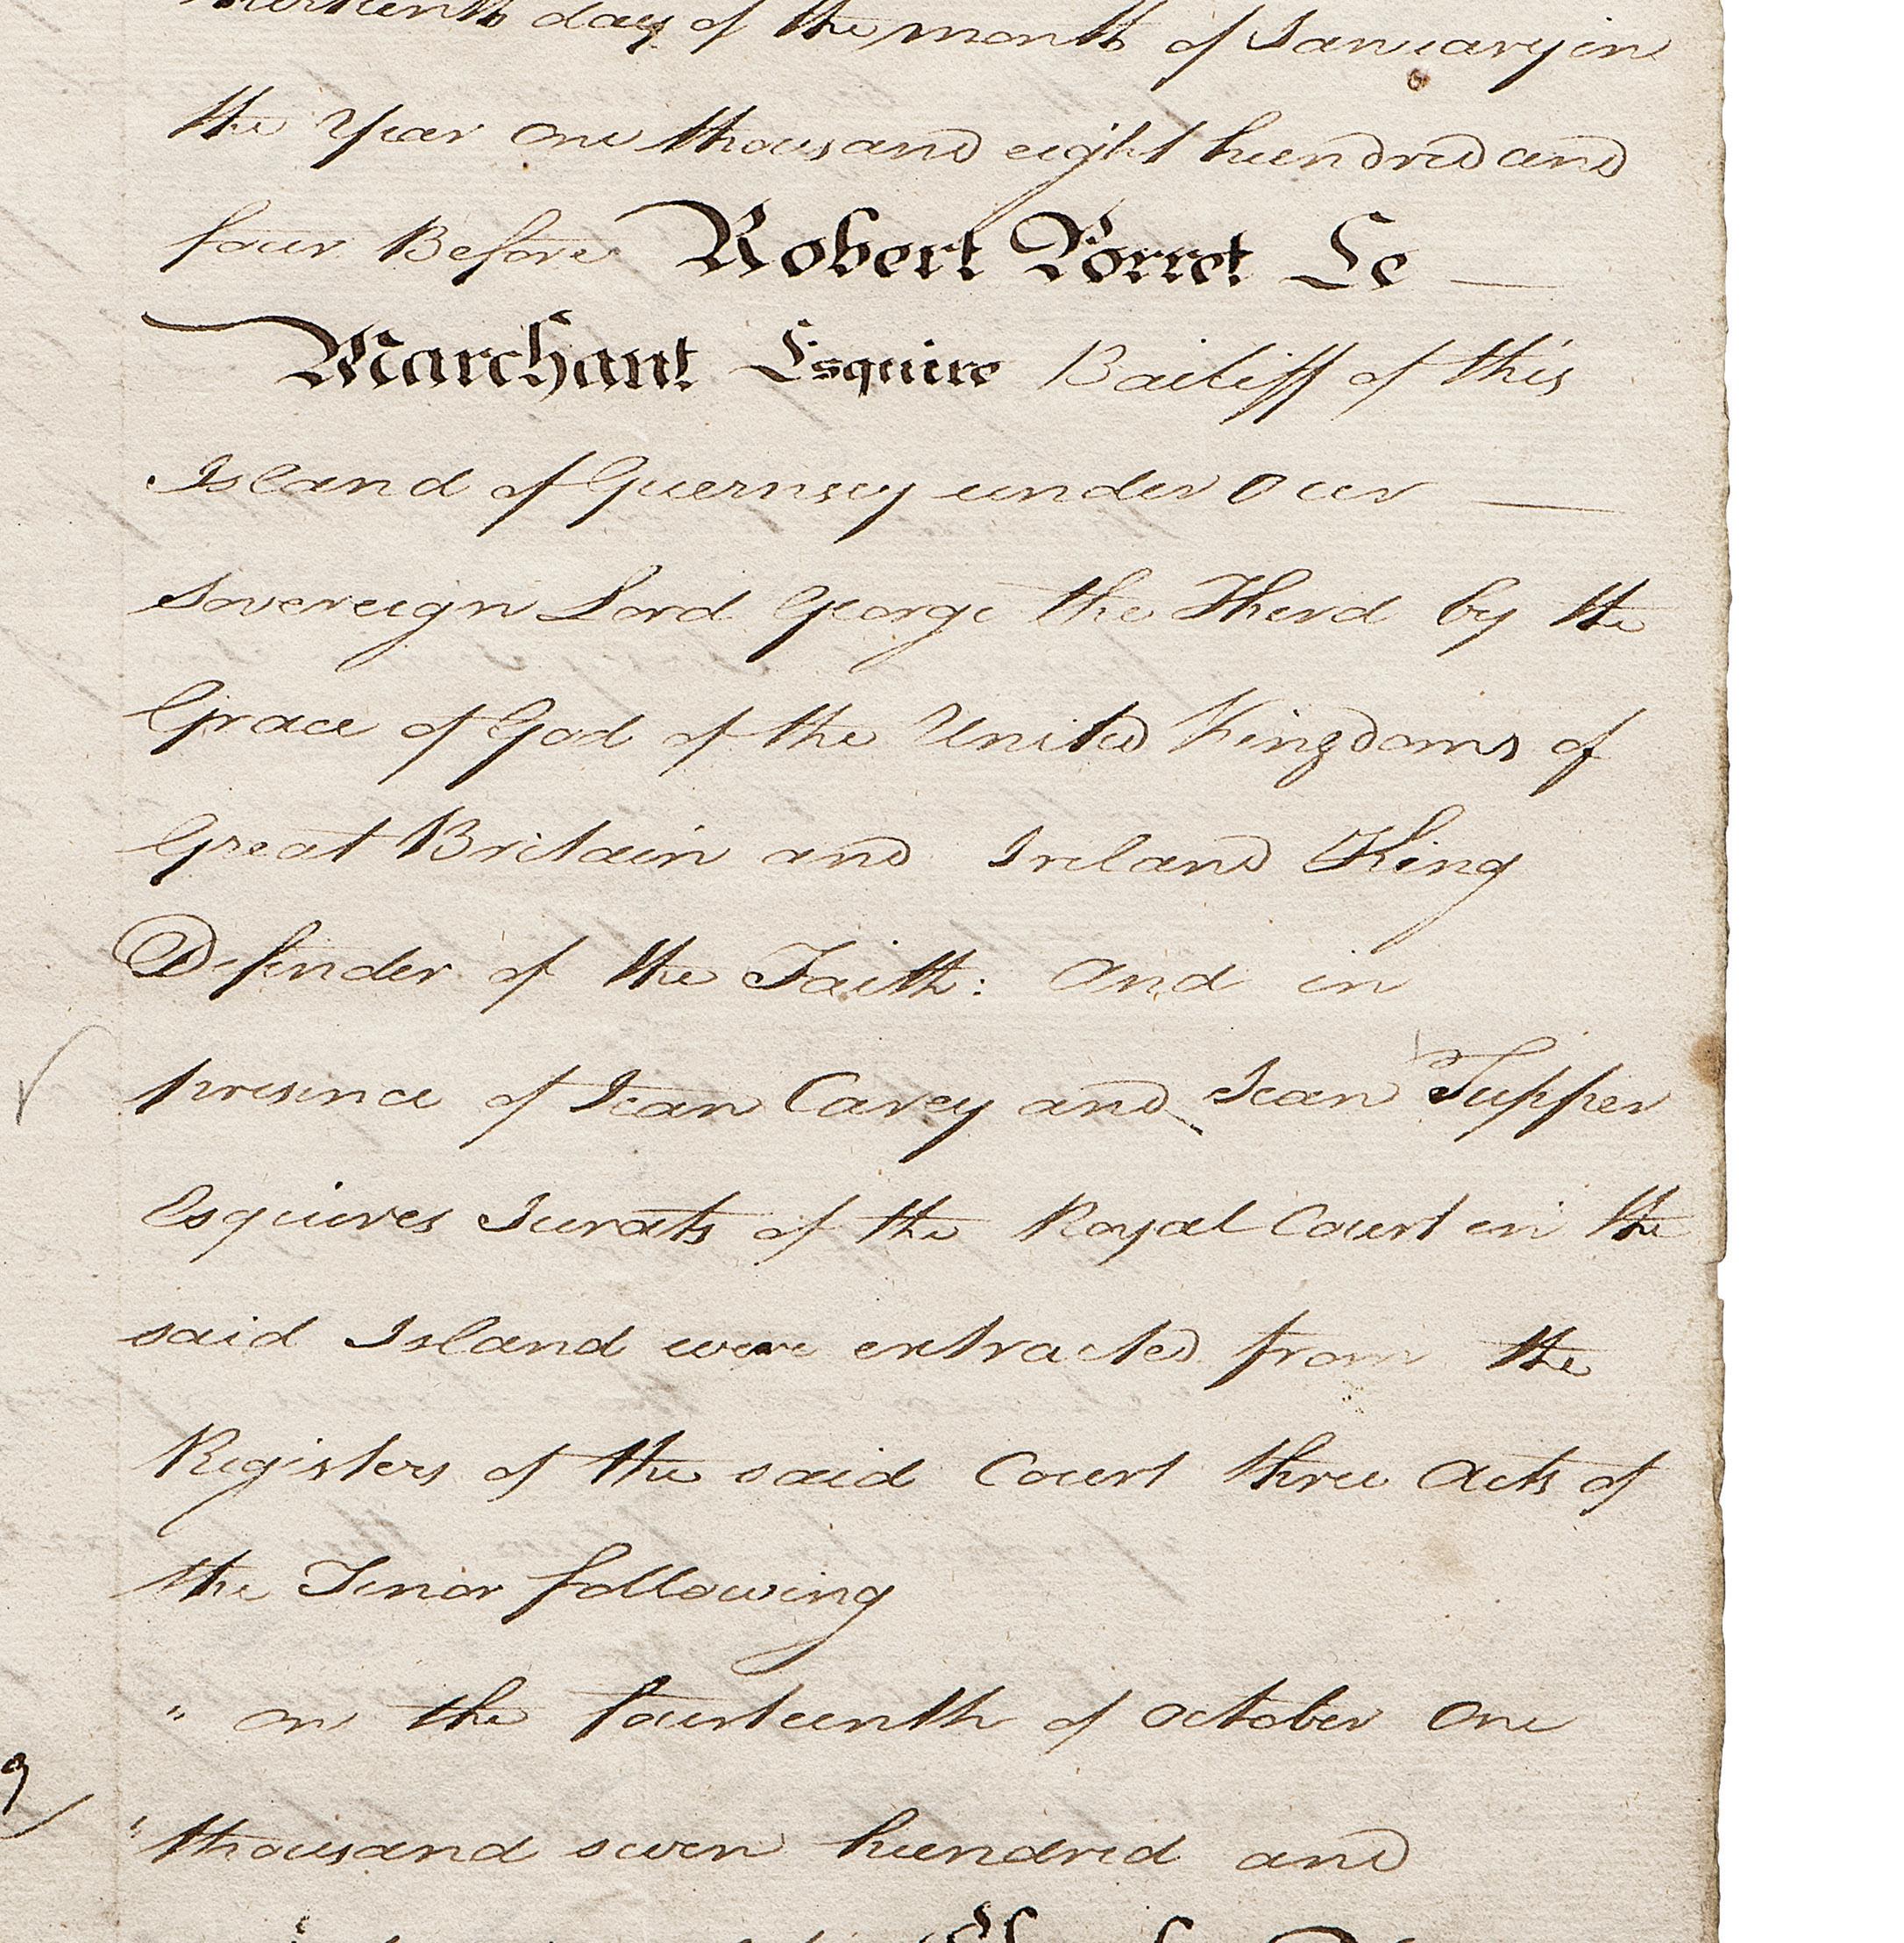 day of the month of January in
the Year one thousand eight hundred and
four Before Robert Porret Le
Marchant Esquire Bailiff of this
Island of Guernsey under our
Sovereign Lord George the Third by the
Grace of God of the United Kingdoms of
Great Britain and Ireland King
Defender of the Faith: And in
presence of Jean Carey and Jean Tupper
Esquires Jurats of the Royal Court in the
said Island were extracted from the
Registers of the said Court three Acts of
the Tenor following
" on the fourteenth of October One
" thousand seven hundred and